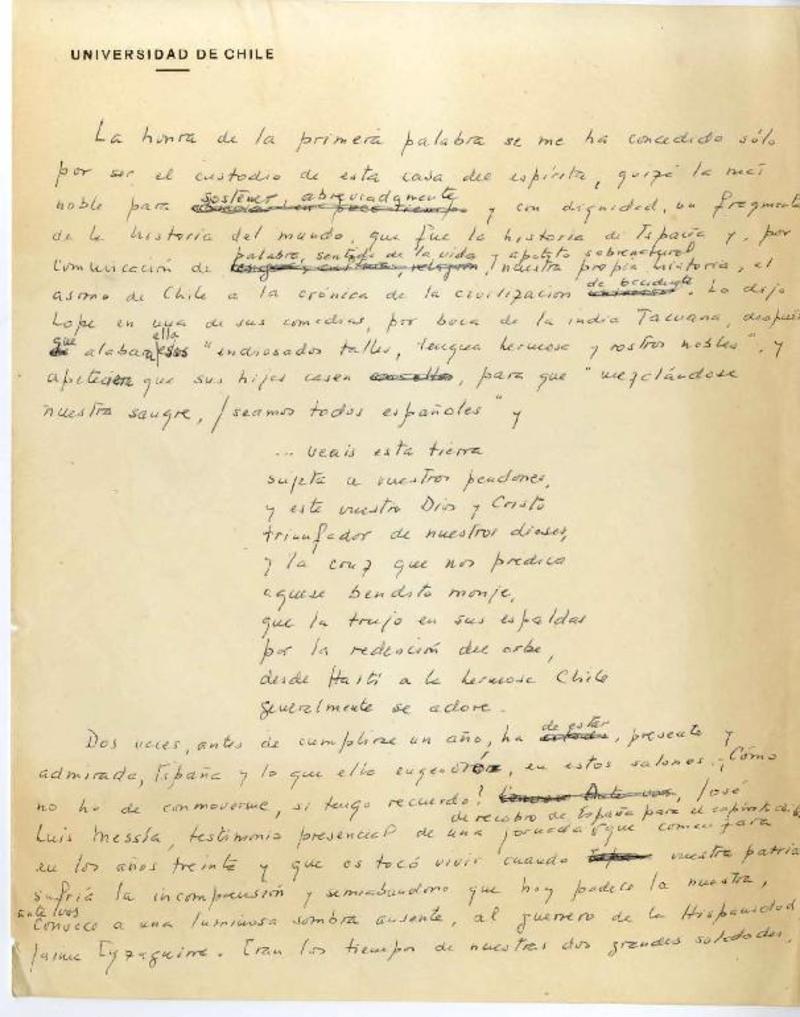 UNIVERSIDAD DE CHILE
La honra de la primera palabra se me ha concedido sólo
por ser el custodio de esta casa del espíritu, quizá la más
sostener abreviadamente
noble para y con dignidad, un fragmento
de la historia del mundo, que fue la historia de España y, por
palabra, sentido de la vida y apetito sobrenatural
comunicación de lengua y cultura, religión, nuestra propia historia, el
de occidente
asomo de Chile a la crónica de la civilización. Lo dijo
Lope en una de sus comedias, por boca de la india Tacuana, después
que ella
alabara esos "endiosados talles, lengua hermosa y rostros nobles", y
apeteciera que sus hijas casen con ellos, para que "mezclándose
nuestra sangre, / seamos todos españoles" y
... veais esta tierra
sujeta a vuestros pendones,
y este vuestro Dios y Cristo
triunfador de nuestros dioses,
y la cruz que nos predica
aquese bendito monje,
que la trujo en sus espaldas
por la redención del orbe,
desde Haití a la hermosa Chile
generalmente se adore.
de estar
Dos veces, antes de cumplirse un año, ha estado, presente y
admirada, España y lo que ella engendró, en estos salones. ¿Cómo
no ha de conmoverme, si tengo recuerdo? Ante vos, José
de recobro de España para el espíritu de
Luis Messía, testimonio presencial de una jornada que comenzara
en los años treinta y que os tocó vivir cuando vuestra patria
sufría la incomprensión y semiabandono que hoy padece la nuestra,
ante vos
Convoco a una luminosa sombra ausente, al guerrero de la Hispanidad
Jaime Eyzaguirre. Eran los tiempos de nuestras dos grandes soledades,